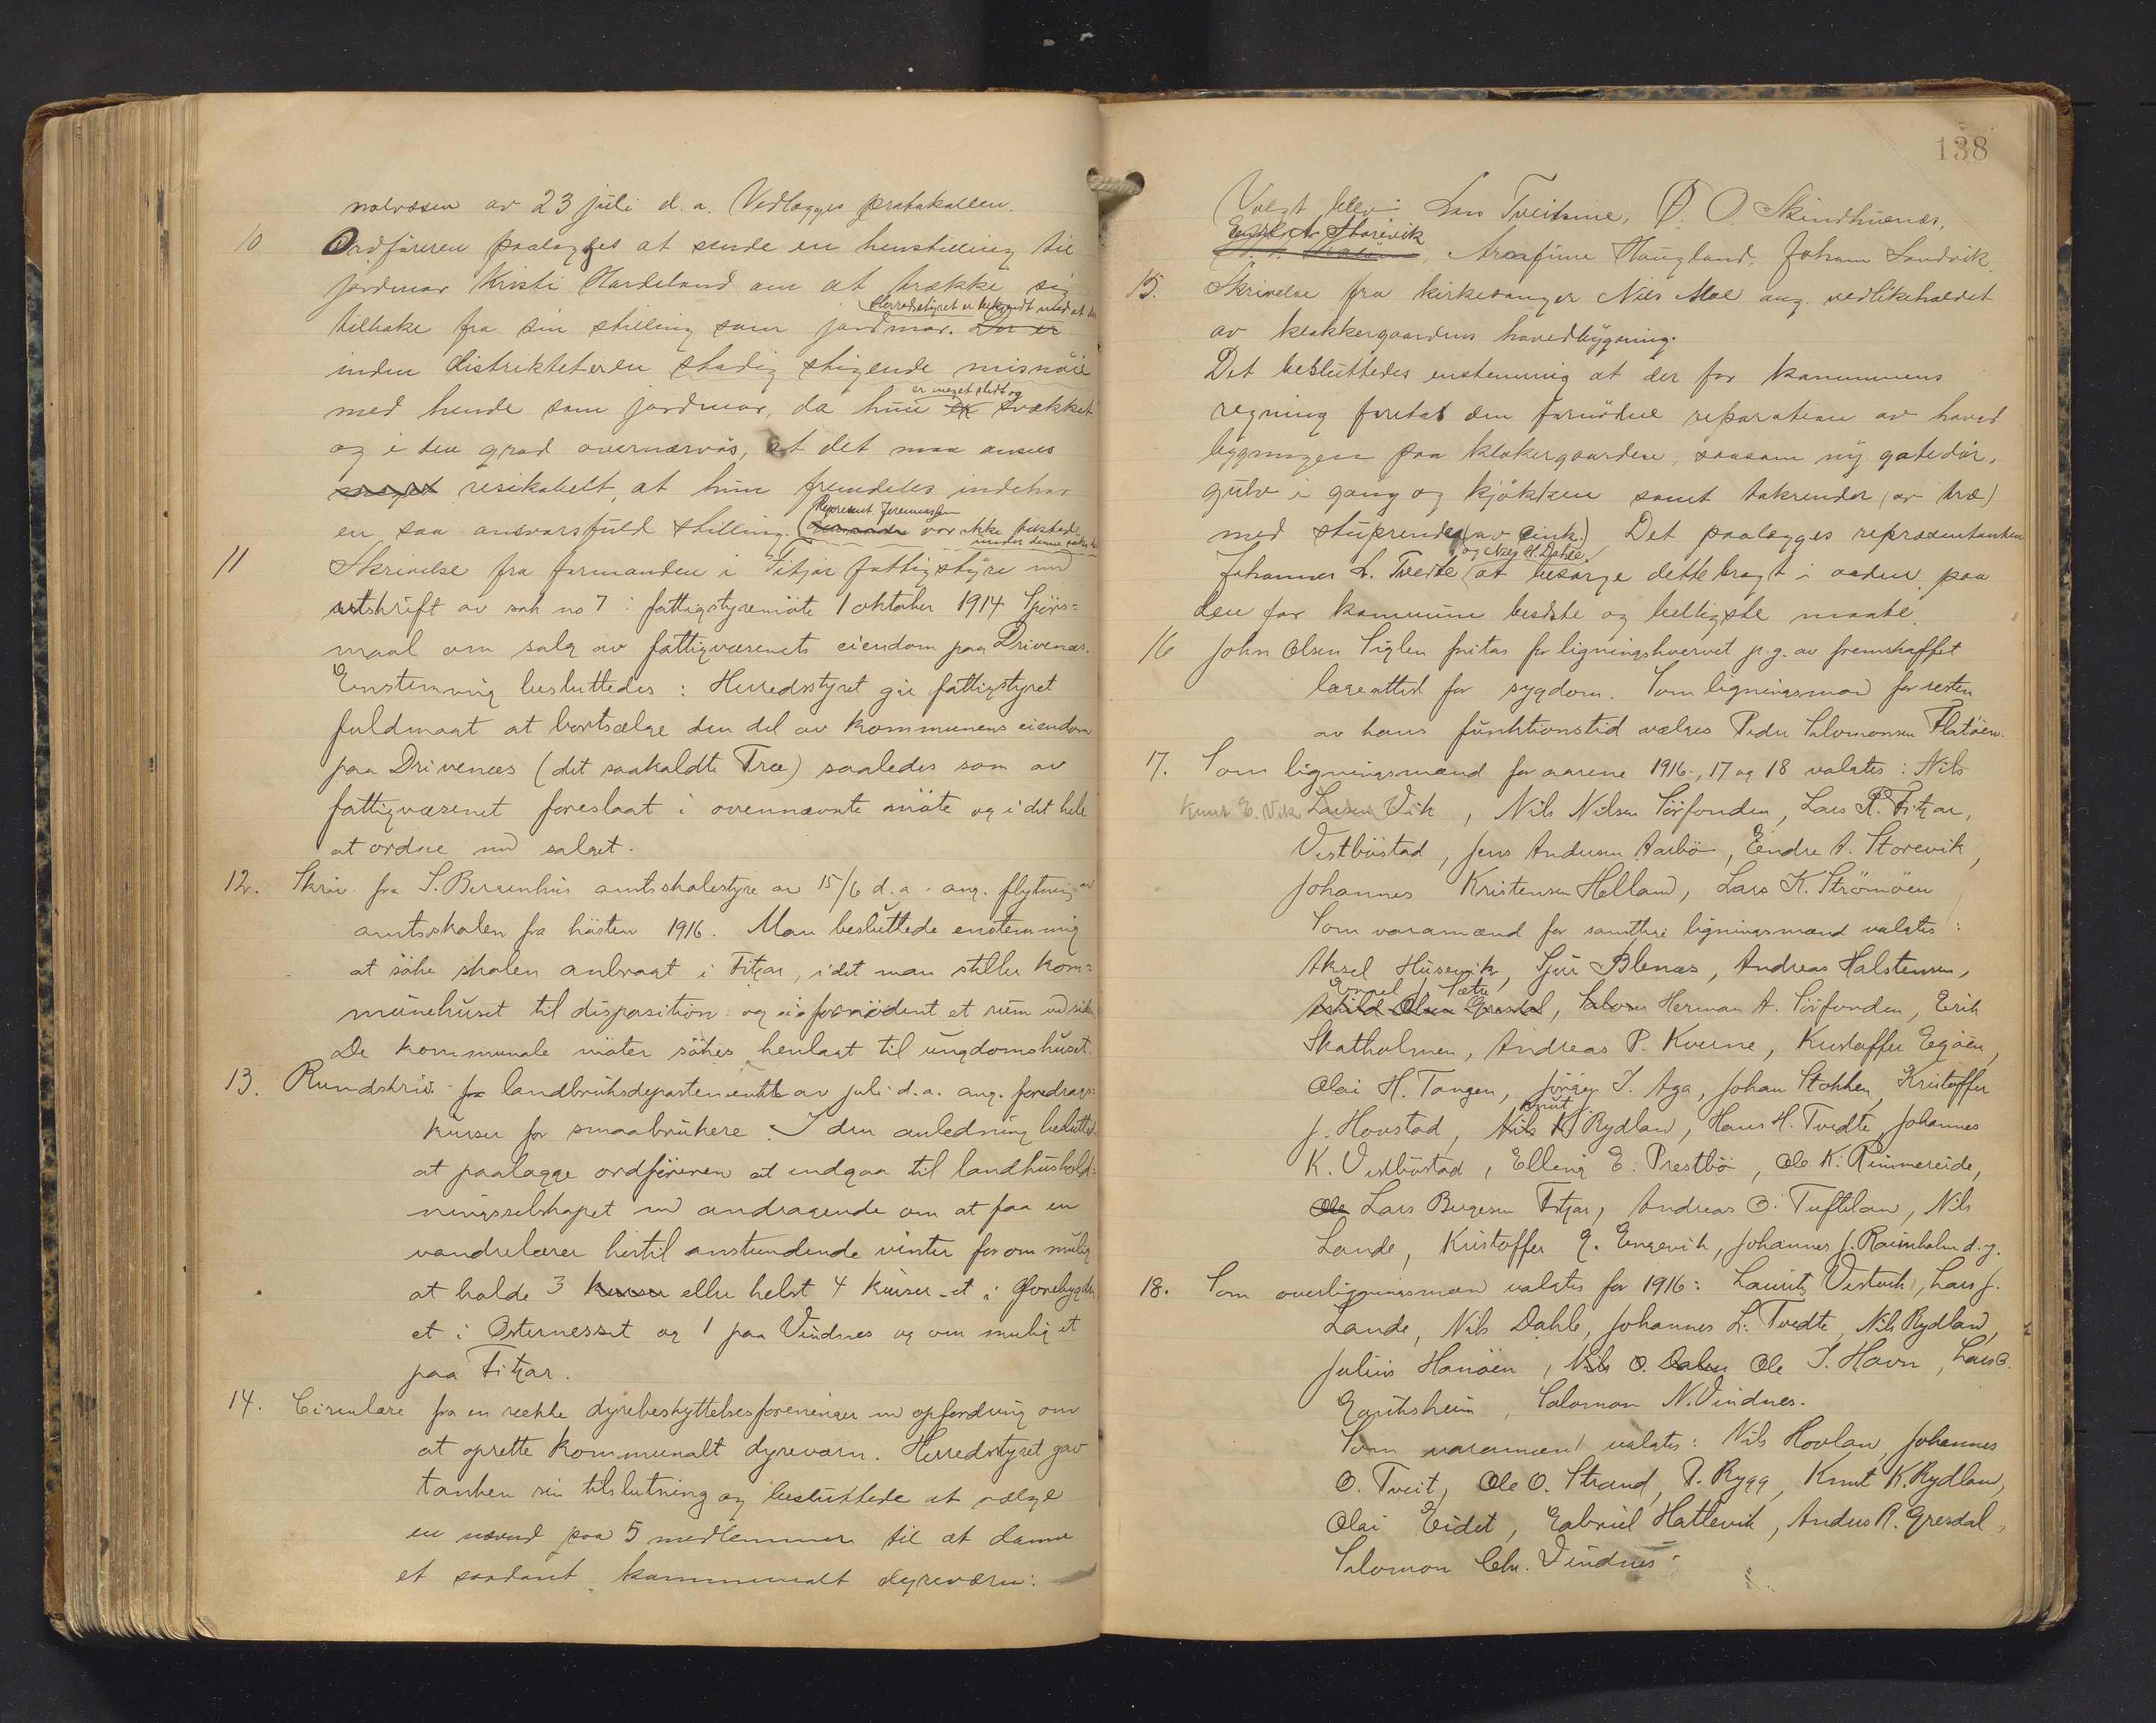 nalvæsen av 23 juli d. a. Vedlægges protokollen.
10 Ordføreren paalægges at sende en henstilling til
jordmor Kristi Hardeland om at trække sig
Herredsstyret er bekjendt med at der
tilbake fra sin stilling som jordmor. Der er
inden distriktet er en stadig stigende misnöie
er meget sløvt og
med hende som jordmor, da hun er svækket
og i den grad overnervøs, at det maa ansees
meget resikabelt, at hun fremdeles indehar
Represent. Foreman
en saa ansvarsfuld stilling. var ikke tilstede
under denne sak
11 Skrivelse fra formanden i Fitjar fattigstyre m
utskrift av sak no 7 i fattigstyremöte 1 oktober 1914 Spörs=
maal om salg av fattigvæsenets eiendom paa Drivenæs.
Enstemmig besluttedes: Herredsstyret gir fattigstyret
fuldmagt at bortsælge den del av kommunens eiendom
paa Drivenæs (det saakaldte Træ) saaledes som av
fattigvæsenet foreslaat i ovennævnte möte og i det hele
at ordne m salget.
12. Skriv. fra S. Bergenhus amtsskolestyre av 15/6 d. a. ang. flytning av
amtsskolen fra hösten 1916. Man besluttede enstemmig
at söke skolen anbragt i Fitjar, idet man stiller kom=
munehuset til disposition og om fornödent et rum ved siden
De kommunale möter sökes henlagt til ungdomshuset.
13. Rundskriv fra landbruksdepartementet av juli d. a. ang. foredrags=
kurser for smaabrukere. I den anledning besluttet
at paalægge ordföreren at indgaa til landhushold=
ningsselskapet m andragende om at faa en
vandrelærer hertil anstundende vinter for om mulig
at holde 3 kurser eller helst 4 kurser - et i Övrebygden
et i Osternesset og 1 paa Vindnes og om mulig et
paa Fitjar.
14. Circulære fra en række dyrebeskyttelsesforeninger m opfordring om
at oprette kommunalt dyreværn. Herredsstyret gav
tanken sin tilslutning og besluttede at vælge
en nævnd paa 5 medlemmer til at danne
et saadant kommunalt dyreværn:
138
Valgt blev: Lars Tveitane, Ø. O. Skindhuenæs,
Endre A. Storevik
Arnfinn Haugland, Johan Sandvik
15. Skrivelse fra kirkesanger Nils Moe ang. vedlikeholdet
av klokkergaardens hovedbygning.
Det besluttedes enstemmig at der for kommunens
regning foretas den fornödne reparation av hoved
bygningen paa klokkergaarden, saasom ny gatedör,
gulv i gang og kjökken samt takrender (av træ)
med stuprender (av zink.) Det paalægges repræsentanten
og Nils H. Dahle
Johannes L. Tvedte at besörge dette bragt i orden paa
den for kommunen bedste og billigste maate.
16 John Olsen Siglen fritas for ligningshvervet p. g. av fremskaffet
lægeattest for sygdom. Som ligningsmand for resten
av hans funktionstid vælges Peder Salomonsen Flatöen.
17. Som ligningsmænd for aarene 1916, 17 og 18 valgtes: Nils
Knut E. Vik Larsen Vik, Nils Nilsen Sörfonden, Lars R. Fitjar,
Vestbüstad, Jens Andersen Aarbö, Endre A. Storevik,
Johannes Kristensen Helland, Lars K. Strömöen
Som varamænd for samtlige ligningsmænd valgtes:
Aksel Husevik, Sjur Blenæs, Andreas Halstensen,
Sætre
Askild Olsen Gresdal, Salom Herman A. Sörfonden, Erik
Skatholmen, Andreas P. Kverne, Kristoffer Egöen,
Olai H. Tangen, Jörgen I. Aga, Johan Stokken, Kristoffer
Knut
J. Hovstad, Nils K Rydland, Hans H. Tvedte, Johannes
K. Vestbüstad, Elling E. Prestbö, Ole K. Rimmereide,
Ole Lars Bergesen Fitjar, Andreas O. Tufteland, Nils
Lande, Kristoffer G. Engevik, Johannes J. Raunholm d. y.
18. Som overligningsmænd valgtes for 1916: Lauritz Vestvik, Lars J.
Lande, Nils Dahle, Johannes L. Tvedte, Nils Rydland,
Julius Hanöen, Nils O. Dalen Ole I. Havn, Lars O.
Engesheim, Salomon N. Vindnes.
Som varamænd valgtes: Nils Hovland, Johannes
O. Tveit, Ole O. Strand, P. Rygg, Knut K. Rydland,
Olai Eidet, Gabriel Hatlevik, Anders R. Gresdal,
Salomon Chr. Vindnes.